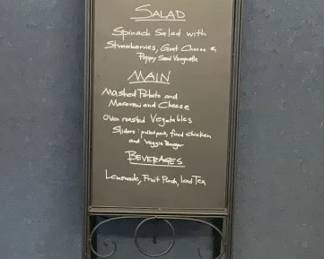 SALAD
Spinach Salad with
Strawberries, Goat Cheese &
Poppy Seed Vinegrette
MAIN
Mashed Potato and
Macaroni and Cheese
oven roasted Vegetables
Sliders: pulled pork, fried chicken
and Veggie Burger
BEVERAGES
Lemonade, Fruit Punch, Iced Tea